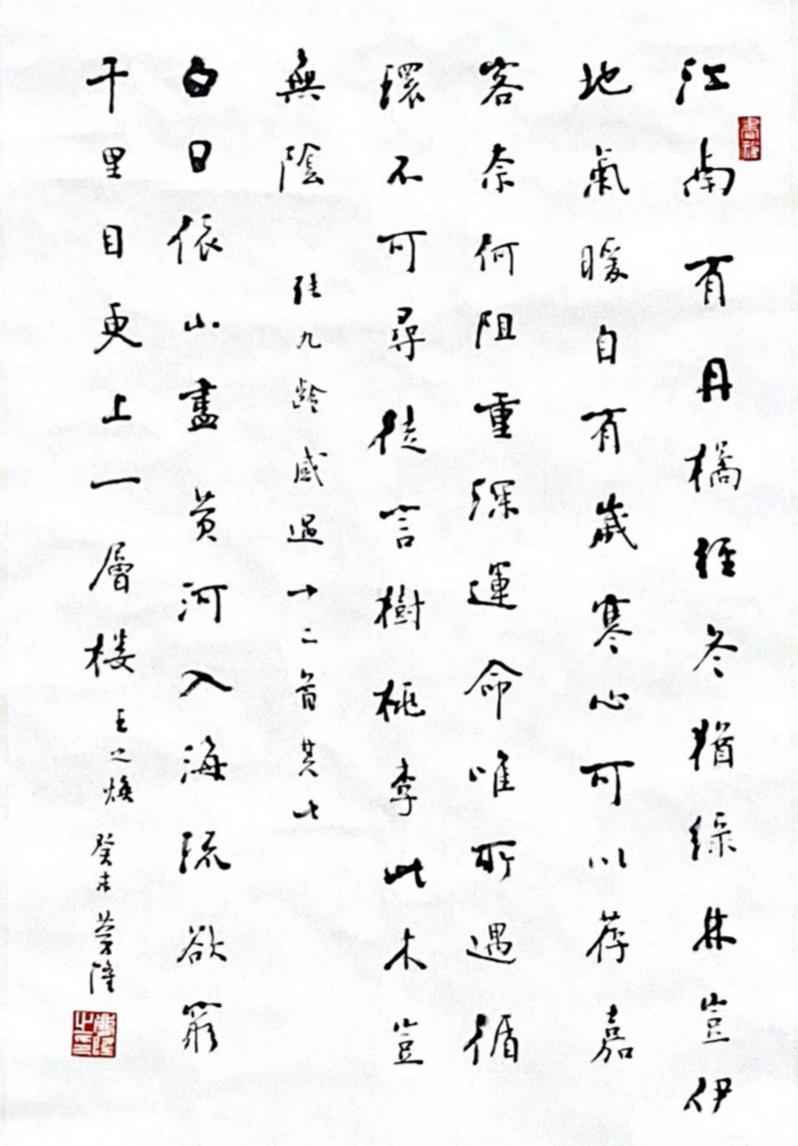 江南有丹橘経冬猶綠林豈伊
地氣暖自有歲寒心可以荐嘉
客奈何阻重深運命唯所遇循
環不可尋徒言樹桃李此木豈
無陰 張九齡感遇十二首其七
白日依山盡黃河入海流欲窮
千里目更上一層楼 王之焕 癸未